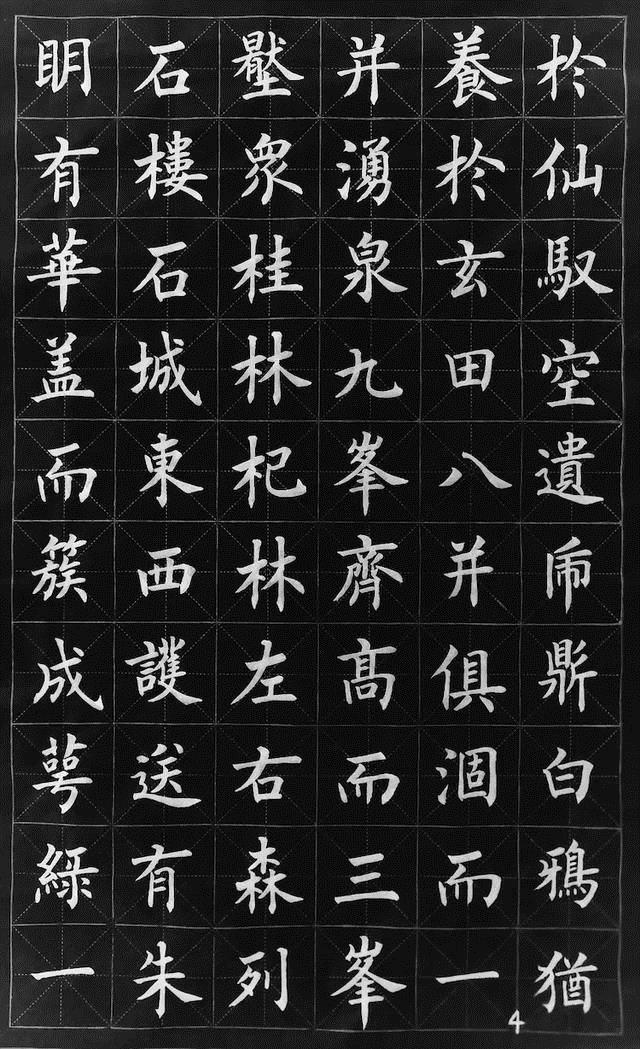 於仙馭空遺乕鼎白鴉猶
養於玄田八并俱涸而一
并湧泉九峯齊髙而三峯
壓衆桂林杞林左右森列
石樓石城東西護送有朱
眀有華盖而簇成萼綠一
4